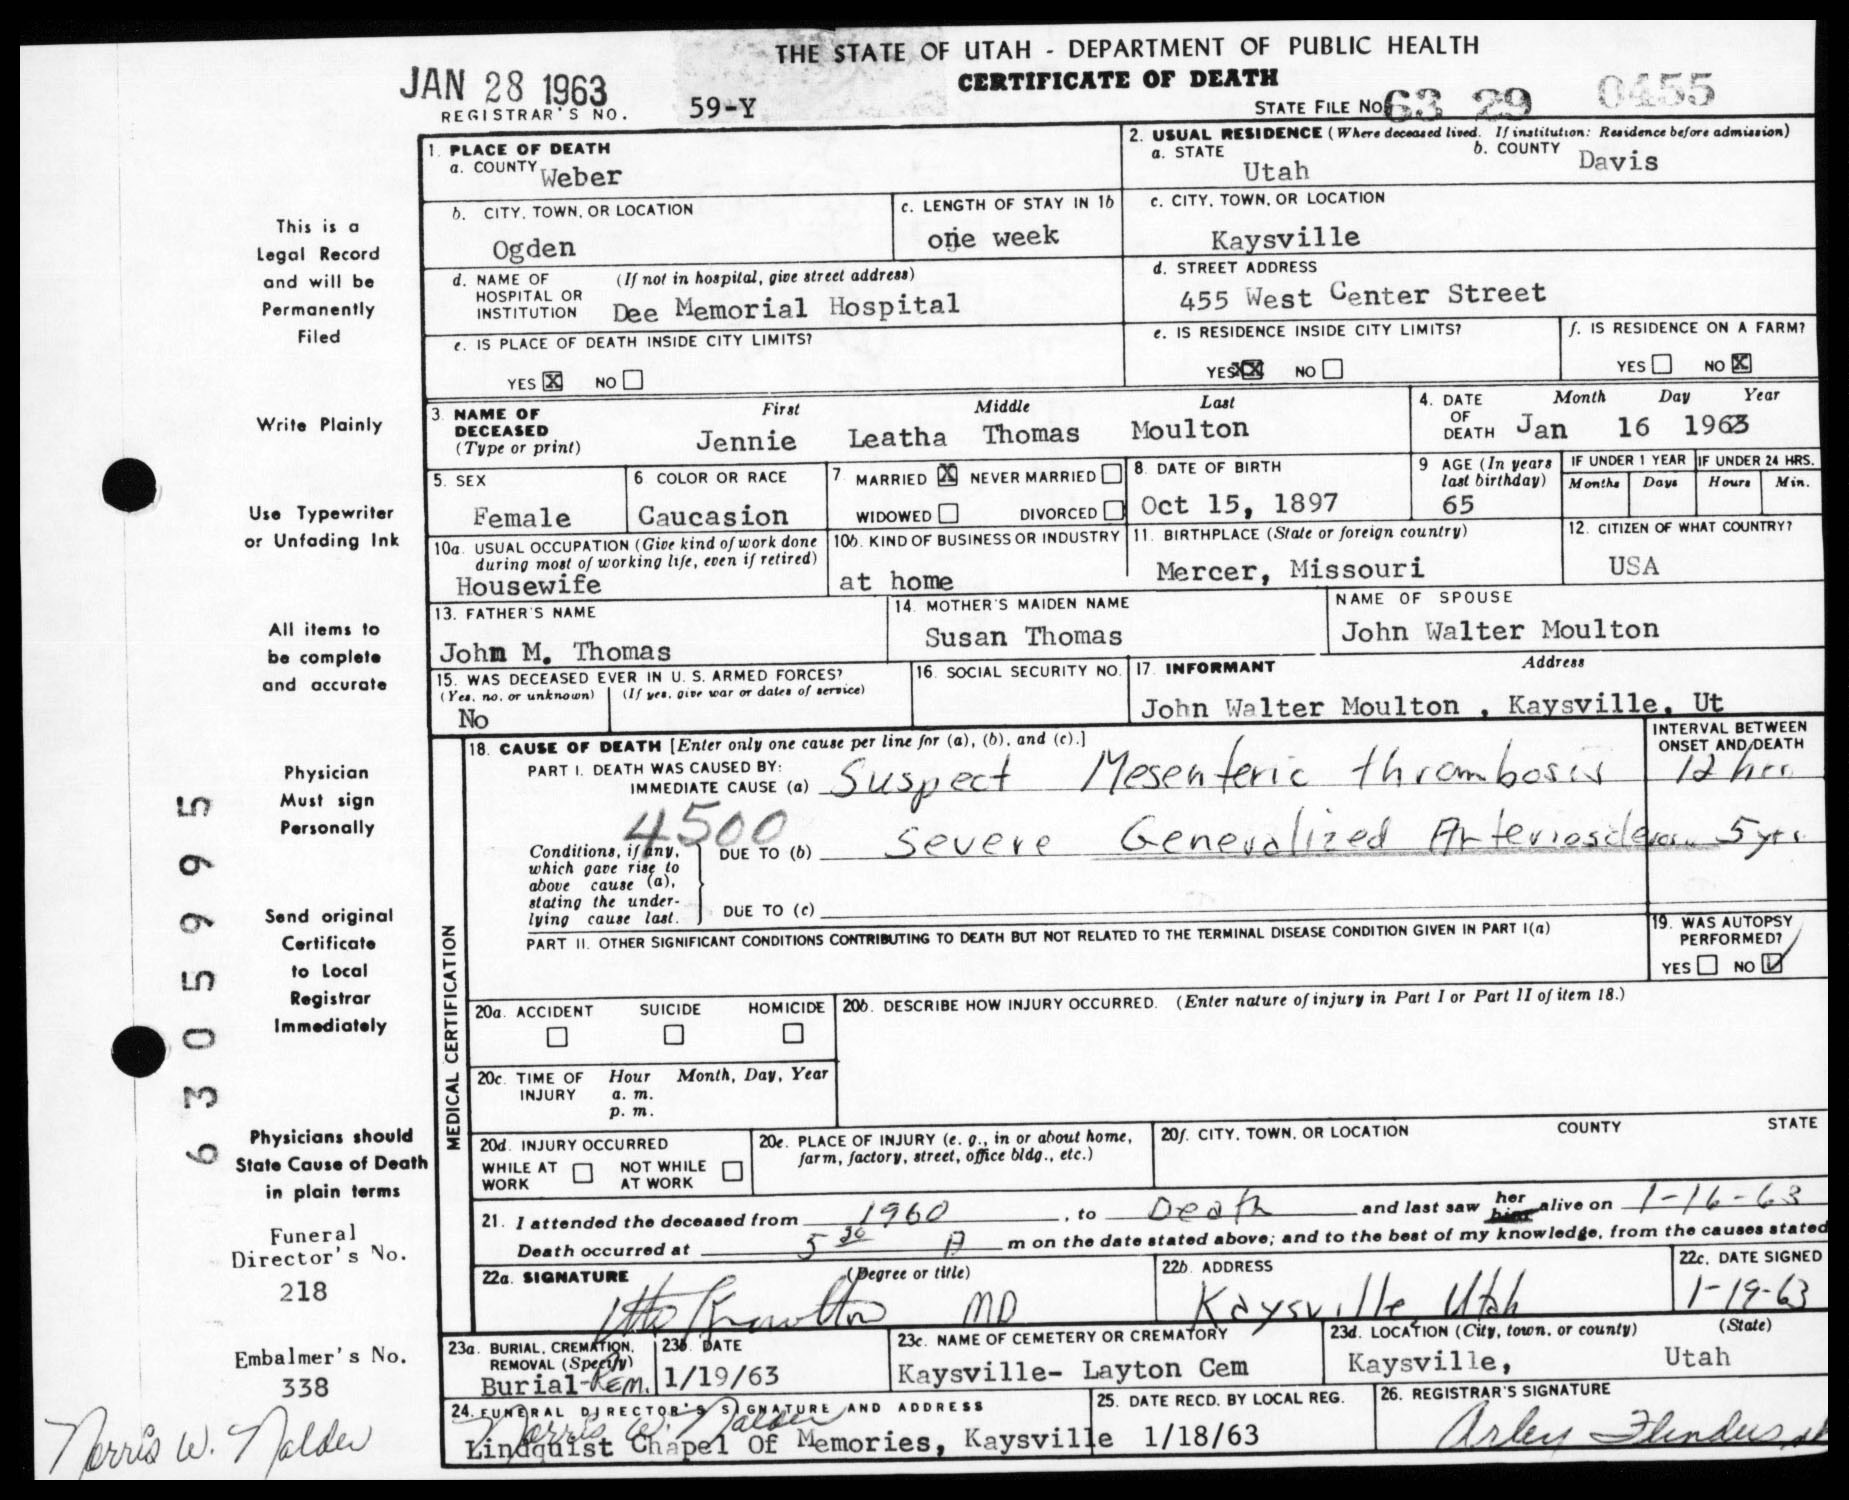 THE STATE OF UTAH - DEPARTMENT OF PUBLIC HEALTH
CERTIFICATE OF DEATH
JAN 28 1963
REGISTRAR'S NO. 59-Y
STATE FILE NO 63 29 0455
1. PLACE OF DEATH
a. COUNTY Weber
2. USUAL RESIDENCE (Where deceased lived. If institution: Residence before admission)
a. STATE Utah
b. COUNTY Davis
b. CITY, TOWN, OR LOCATION
Ogden
c. LENGTH OF STAY IN 1b
one week
c. CITY, TOWN, OR LOCATION
Kaysville
d. NAME OF HOSPITAL OR INSTITUTION (If not in hospital, give street address)
Dee Memorial Hospital
d. STREET ADDRESS
455 West Center Street
e. IS PLACE OF DEATH INSIDE CITY LIMITS?
YES X NO
e. IS RESIDENCE INSIDE CITY LIMITS?
YES XX NO
f. IS RESIDENCE ON A FARM?
YES NO X
3. NAME OF DECEASED (Type or print)
First Middle Last
Jennie Leatha Thomas Moulton
4. DATE OF DEATH
Month Day Year
Jan 16 1963
5. SEX
Female
6 COLOR OR RACE
Caucasion
7 MARRIED X NEVER MARRIED
WIDOWED DIVORCED
8. DATE OF BIRTH
Oct 15, 1897
9 AGE (In years last birthday)
65
IF UNDER 1 YEAR
Months Days
IF UNDER 24 HRS.
Hours Min.
10a. USUAL OCCUPATION (Give kind of work done during most of working life, even if retired)
Housewife
10b. KIND OF BUSINESS OR INDUSTRY
at home
11. BIRTHPLACE (State or foreign country)
Mercer, Missouri
12. CITIZEN OF WHAT COUNTRY?
USA
13. FATHER'S NAME
John M. Thomas
14. MOTHER'S MAIDEN NAME
Susan Thomas
NAME OF SPOUSE
John Walter Moulton
15. WAS DECEASED EVER IN U. S. ARMED FORCES?
(Yes, no, or unknown) (If yes, give war or dates of service)
No
16. SOCIAL SECURITY NO.
17. INFORMANT Address
John Walter Moulton , Kaysville, Ut
MEDICAL CERTIFICATION
18. CAUSE OF DEATH [Enter only one cause per line for (a), (b), and (c).]
INTERVAL BETWEEN ONSET AND DEATH
PART I. DEATH WAS CAUSED BY:
IMMEDIATE CAUSE (a) Suspect Mesenteric thrombosis 12 hrs.
4500
Conditions, if any, which gave rise to above cause (a), stating the underlying cause last.
DUE TO (b) Severe Generalized Arteriosclerosis 5 yrs.
DUE TO (c)
PART II. OTHER SIGNIFICANT CONDITIONS CONTRIBUTING TO DEATH BUT NOT RELATED TO THE TERMINAL DISEASE CONDITION GIVEN IN PART I(a)
19. WAS AUTOPSY PERFORMED?
YES NO ✓
20a. ACCIDENT SUICIDE HOMICIDE
20b. DESCRIBE HOW INJURY OCCURRED. (Enter nature of injury in Part I or Part II of item 18.)
20c. TIME OF INJURY Hour Month, Day, Year
a. m.
p. m.
20d. INJURY OCCURRED
WHILE AT WORK NOT WHILE AT WORK
20e. PLACE OF INJURY (e. g., in or about home, farm, factory, street, office bldg., etc.)
20f. CITY, TOWN, OR LOCATION COUNTY STATE
21. I attended the deceased from 1960, to Death and last saw her him alive on 1-16-63
Death occurred at 5 30 A m on the date stated above; and to the best of my knowledge, from the causes stated
22a. SIGNATURE (Degree or title)
MD
22b. ADDRESS
Kaysville Utah
22c. DATE SIGNED
1-19-63
23a. BURIAL, CREMATION, REMOVAL (Specify)
Burial-Rem.
23b. DATE
1/19/63
23c. NAME OF CEMETERY OR CREMATORY
Kaysville- Layton Cem
23d. LOCATION (City, town, or county) (State)
Kaysville, Utah
24. FUNERAL DIRECTOR'S SIGNATURE AND ADDRESS
Norris W. Nalder
Lindquist Chapel Of Memories, Kaysville
25. DATE RECD. BY LOCAL REG.
1/18/63
26. REGISTRAR'S SIGNATURE
Arley Flinders
This is a
Legal Record
and will be
Permanently
Filed
Write Plainly
Use Typewriter
or Unfading Ink
All items to
be complete
and accurate
Physician
Must sign
Personally
Send original
Certificate
to Local
Registrar
Immediately
Physicians should
State Cause of Death
in plain terms
Funeral
Director's No.
218
Embalmer's No.
338
Norris W. Nalder
6305995